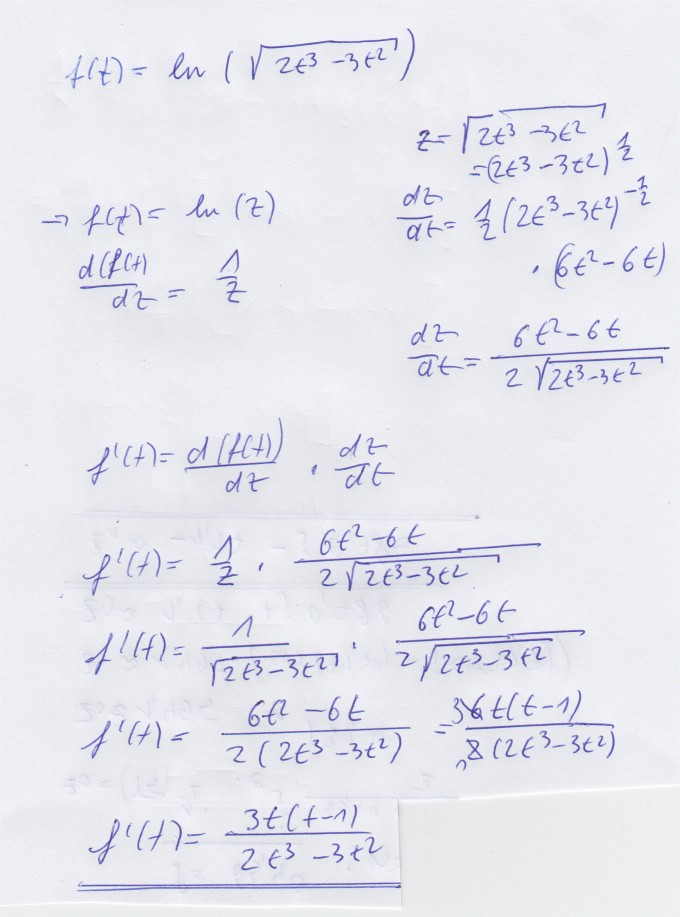 f(t) = ln (√(2t³ - 3t²))
z = √(2t³ - 3t²)
= (2t³ - 3t²)^(1/2)
→ f(t) = ln (z)
dz/dt = 1/2 (2t³ - 3t²)^(-1/2)
· (6t² - 6t)
d(f(t)/dz = 1/z
dz/dt = (6t² - 6t)/(2√(2t³ - 3t²))
f'(t) = d(f(t))/dz · dz/dt
f'(t) = 1/z · (6t² - 6t)/(2√(2t³ - 3t²))
f'(t) = 1/√(2t³ - 3t²) · (6t² - 6t)/(2√(2t³ - 3t²))
f'(t) = (6t² - 6t)/(2(2t³ - 3t²)) = 3 6t(t-1)/(2(2t³ - 3t²))
f'(t) = 3t(t-1)/(2t³ - 3t²)